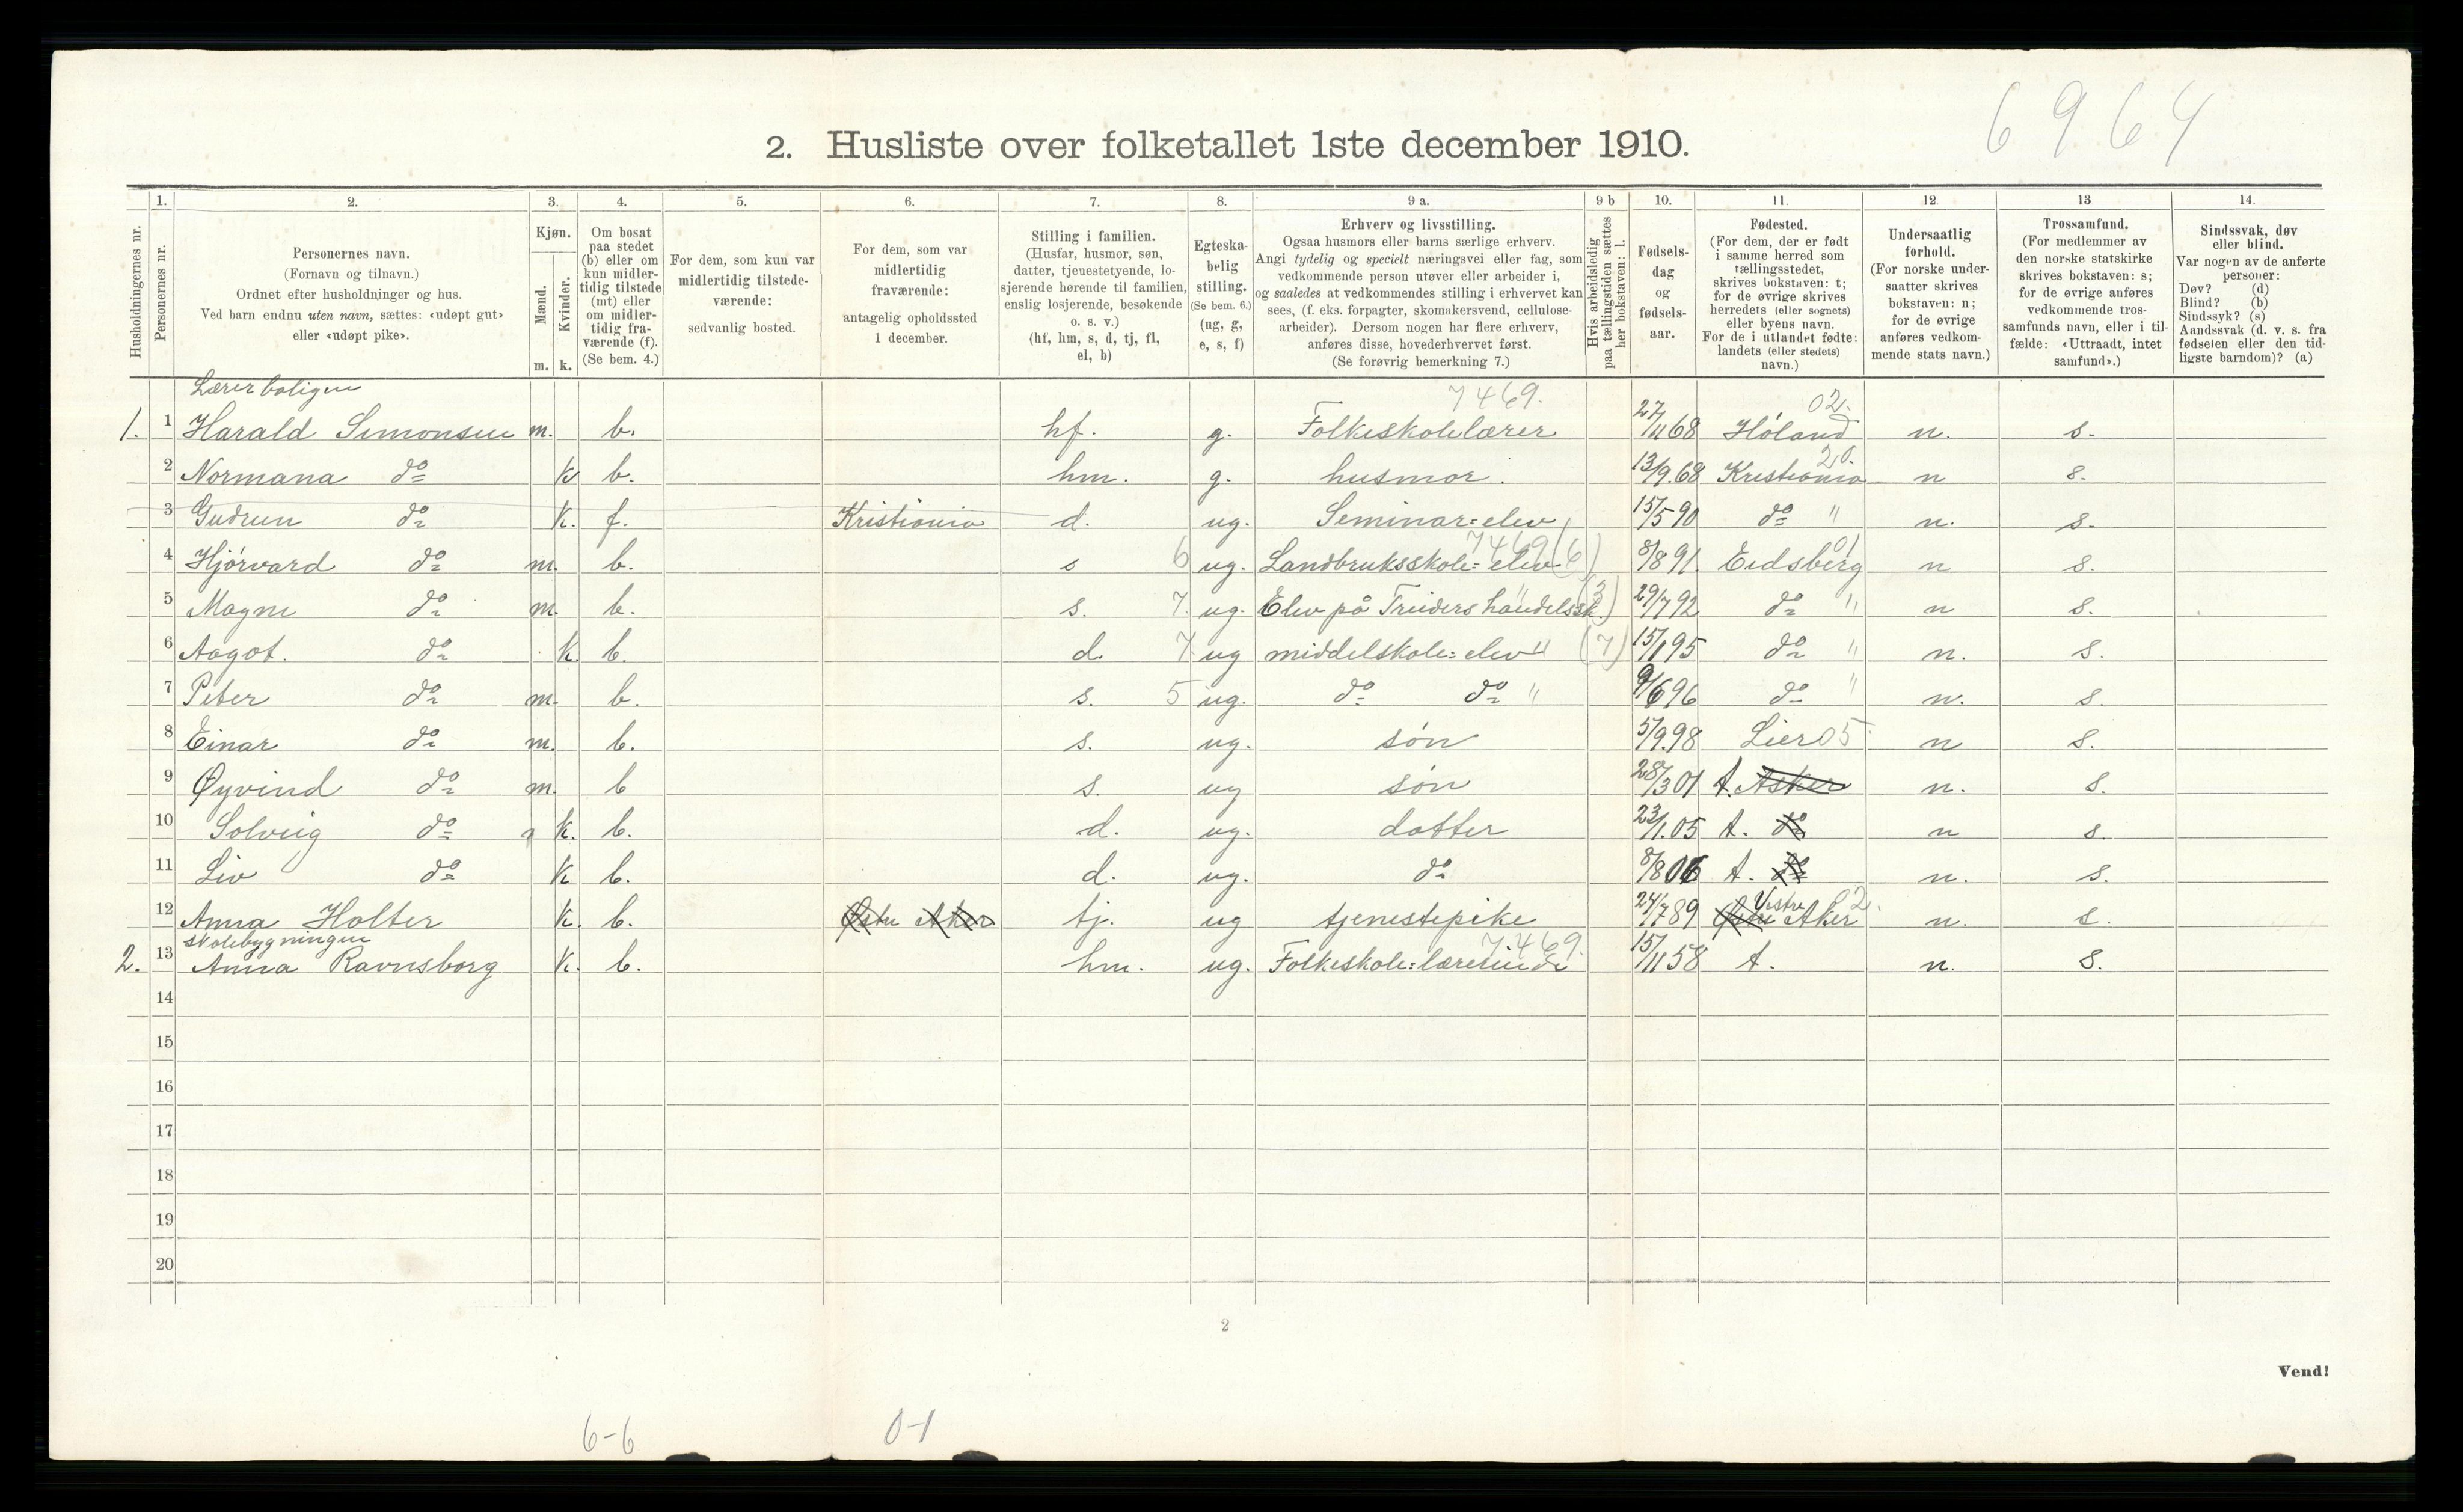 6964
2. Husliste over folketallet 1ste december 1910.
Husholdningernes nr.
1. Personernes nr.
2. Personernes navn. (Fornavn og tilnavn.) Ordnet efter husholdninger og hus. Ved barn endnu uten navn, sættes: «udøpt gut» eller «udøpt pike».
3. Kjøn. Mænd. m. Kvinder. k.
4. Om bosat paa stedet (b) eller om kun midlertidig tilstede (mt) eller om midlertidig fraværende (f). (Se bem. 4.)
5. For dem, som kun var midlertidig tilstedeværende: sedvanlig bosted.
6. For dem, som var midlertidig fraværende: antagelig opholdssted 1 december.
7. Stilling i familien. (Husfar, husmor, søn, datter, tjenestetyende, losjerende hørende til familien, enslig losjerende, besøkende o. s. v.) (hf, hm, s, d, tj, fl, el, b)
8. Egteskabelig stilling. (Se bem. 6.) (ug, g, e, s, f)
9 a. Erhverv og livsstilling. Ogsaa husmors eller barns særlige erhverv. Angi tydelig og specielt næringsvei eller fag, som vedkommende person utøver eller arbeider i, og saaledes at vedkommendes stilling i erhvervet kan sees, (f. eks. forpagter, skomakersvend, cellulosearbeider). Dersom nogen har flere erhverv, anføres disse, hovederhvervet først. (Se forøvrig bemerkning 7.)
9 b Hvis arbeidsledig paa tællingstiden sættes her bokstaven: l.
10. Fødselsdag og fødselsaar.
11. Fødested. (For dem, der er født i samme herred som tællingsstedet, skrives bokstaven: t; for de øvrige skrives herredets (eller sognets) eller byens navn. For de i utlandet fødte: landets (eller stedets) navn.)
12. Undersaatlig forhold. (For norske undersaatter skrives bokstaven: n; for de øvrige anføres vedkommende stats navn.)
13 Trossamfund. (For medlemmer av den norske statskirke skrives bokstaven: s; for de øvrige anføres vedkommende trossamfunds navn, eller i tilfælde: «Uttraadt, intet samfund».)
14. Sindssvak, døv eller blind. Var nogen av de anførte personer: Døv? (d) Blind? (b) Sindssyk? (s) Aandssvak (d. v. s. fra fødselen eller den tidligste barndom)? (a)
Lærerboligen 7469. 02.
1. 1 Harald Simonsen m. b. hf. g. Folkeskolelærer 27/11 68 Høland n. s.
2 Normana do k b. hm. g. husmor. 13/9.68 Kristiania 20. n s.
3 Gudrun do k. f. Kristiania d. ug. Seminar=elev 15/5 90 do " n. s.
4 Hjørvard do m. b. s 6 ug. Landbruksskole=elev 7469 (6) 8/8 91. Eidsberg 01 n s.
5 Magne do m. b. s. 7. ug. Elev på Treiders handelssk " (3) 29/7 92 do " n s.
6 Aagot. do k. b. d. 7 ug middelskole=elev " (7) 15/1 95 do " n. s.
7 Peter do m. b. s. 5 ug. do do " 9/6 96 do " n. s.
8 Einar do m. b. s. ug. søn 5/9.98 Lier 05 n s.
9 Øyvind do m. b s. ug søn 28/3 01 t. Asker n. s.
10 Solveig do k. b. d. ug. datter 23/1.05 t. do n s.
11 Liv do k b. d. ug. do 8/8 06 t. do n. s.
12 Anna Holter k. b. Østre Aker tj. ug tjenestepike 24/7 89 Østre Vestre Aker 02. n. s.
skolebygningen
2. 13 Anna Ravnsborg k. b. hm. ug. Folkeskole=lærerinde 7469. 15/11 58 t. n. s.
14
15
16
17
18
19
20
2
Vend!
6-6 0-1